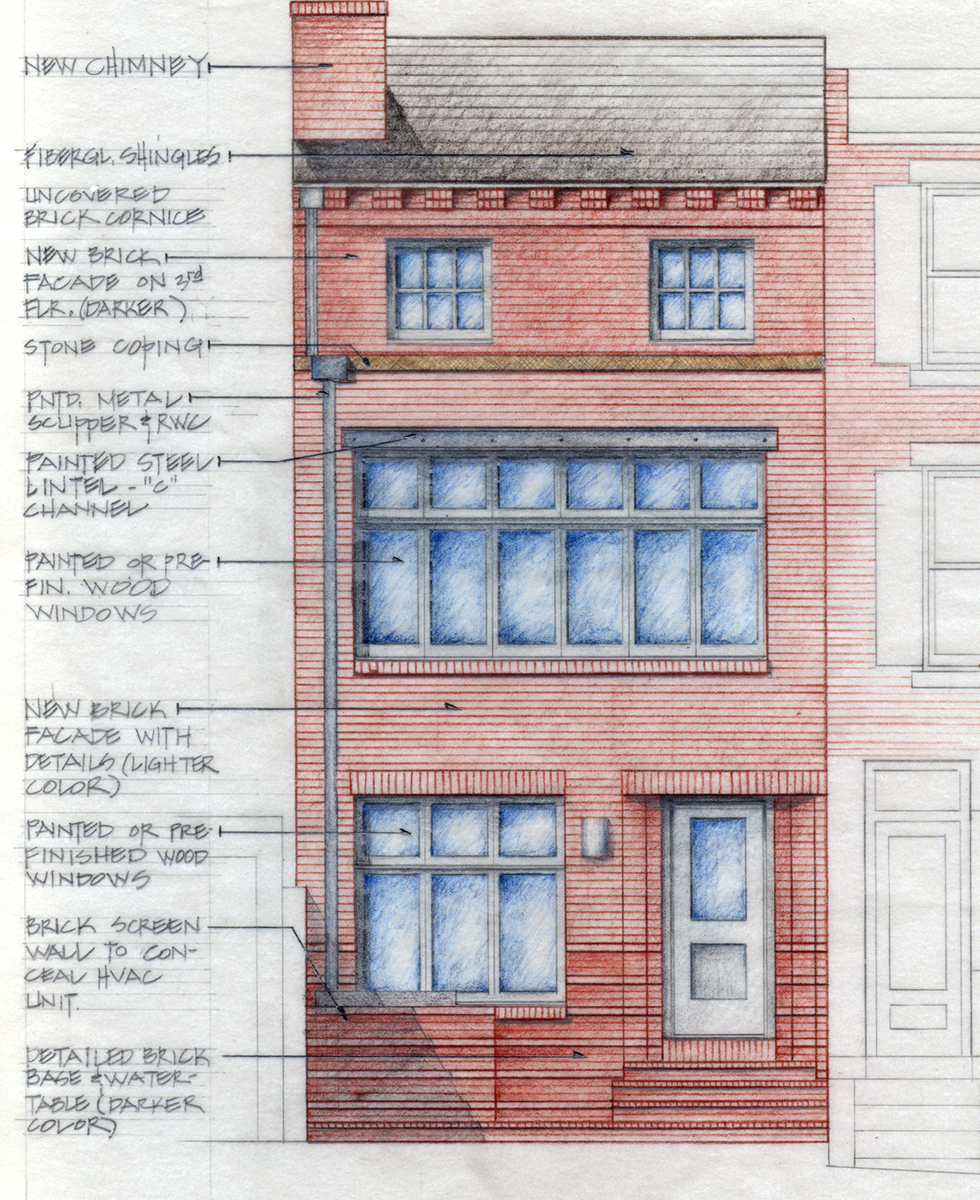 NEW CHIMNEY
FIBERGL. SHINGLES
UNCOVERED
BRICK CORNICE
NEW BRICK
FACADE ON 3rd
FLR. (DARKER)
STONE COPING
PNTD. METAL
SCUPPER & RWC
PAINTED STEEL
LINTEL - "C"
CHANNEL
PAINTED OR PRE-
FIN. WOOD
WINDOWS
NEW BRICK
FACADE WITH
DETAILS (LIGHTER
COLOR)
PAINTED OR PRE-
FINISHED WOOD
WINDOWS
BRICK SCREEN
WALL TO CON-
CEAL HVAC
UNIT.
DETAILED BRICK
BASE & WATER-
TABLE (DARKER
COLOR)